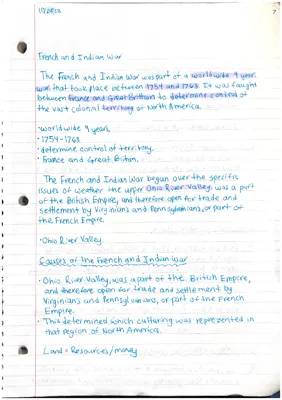 French and Indian War
The French and Indian War was part of a worldwide 9 year
war that took place between 1754 and 1763. It was fought
between France and Great Brittain to determine control of
the vast colonial territory of North America.
·worldwide 9 years
·1754-1763
·determine control of territory.
·France and Great Britan.
The French and Indian War began over the specific
issues of weather the upper Ohio River Valley was a part
of the British Empire, and therefore open for trade and
settlement by Virginians and Pennsylvanians, or part of
the French Empire.
·Ohio River Valley
Causes of the French and Indian War
·Ohio River Valley, was a part of the British Empire,
and therefore open for trade and settlement by
Virginians and Pennsylvanians, or part of the French
Empire.
·This determined which culturing was represented in
that region of North America.
Land = Resources/money